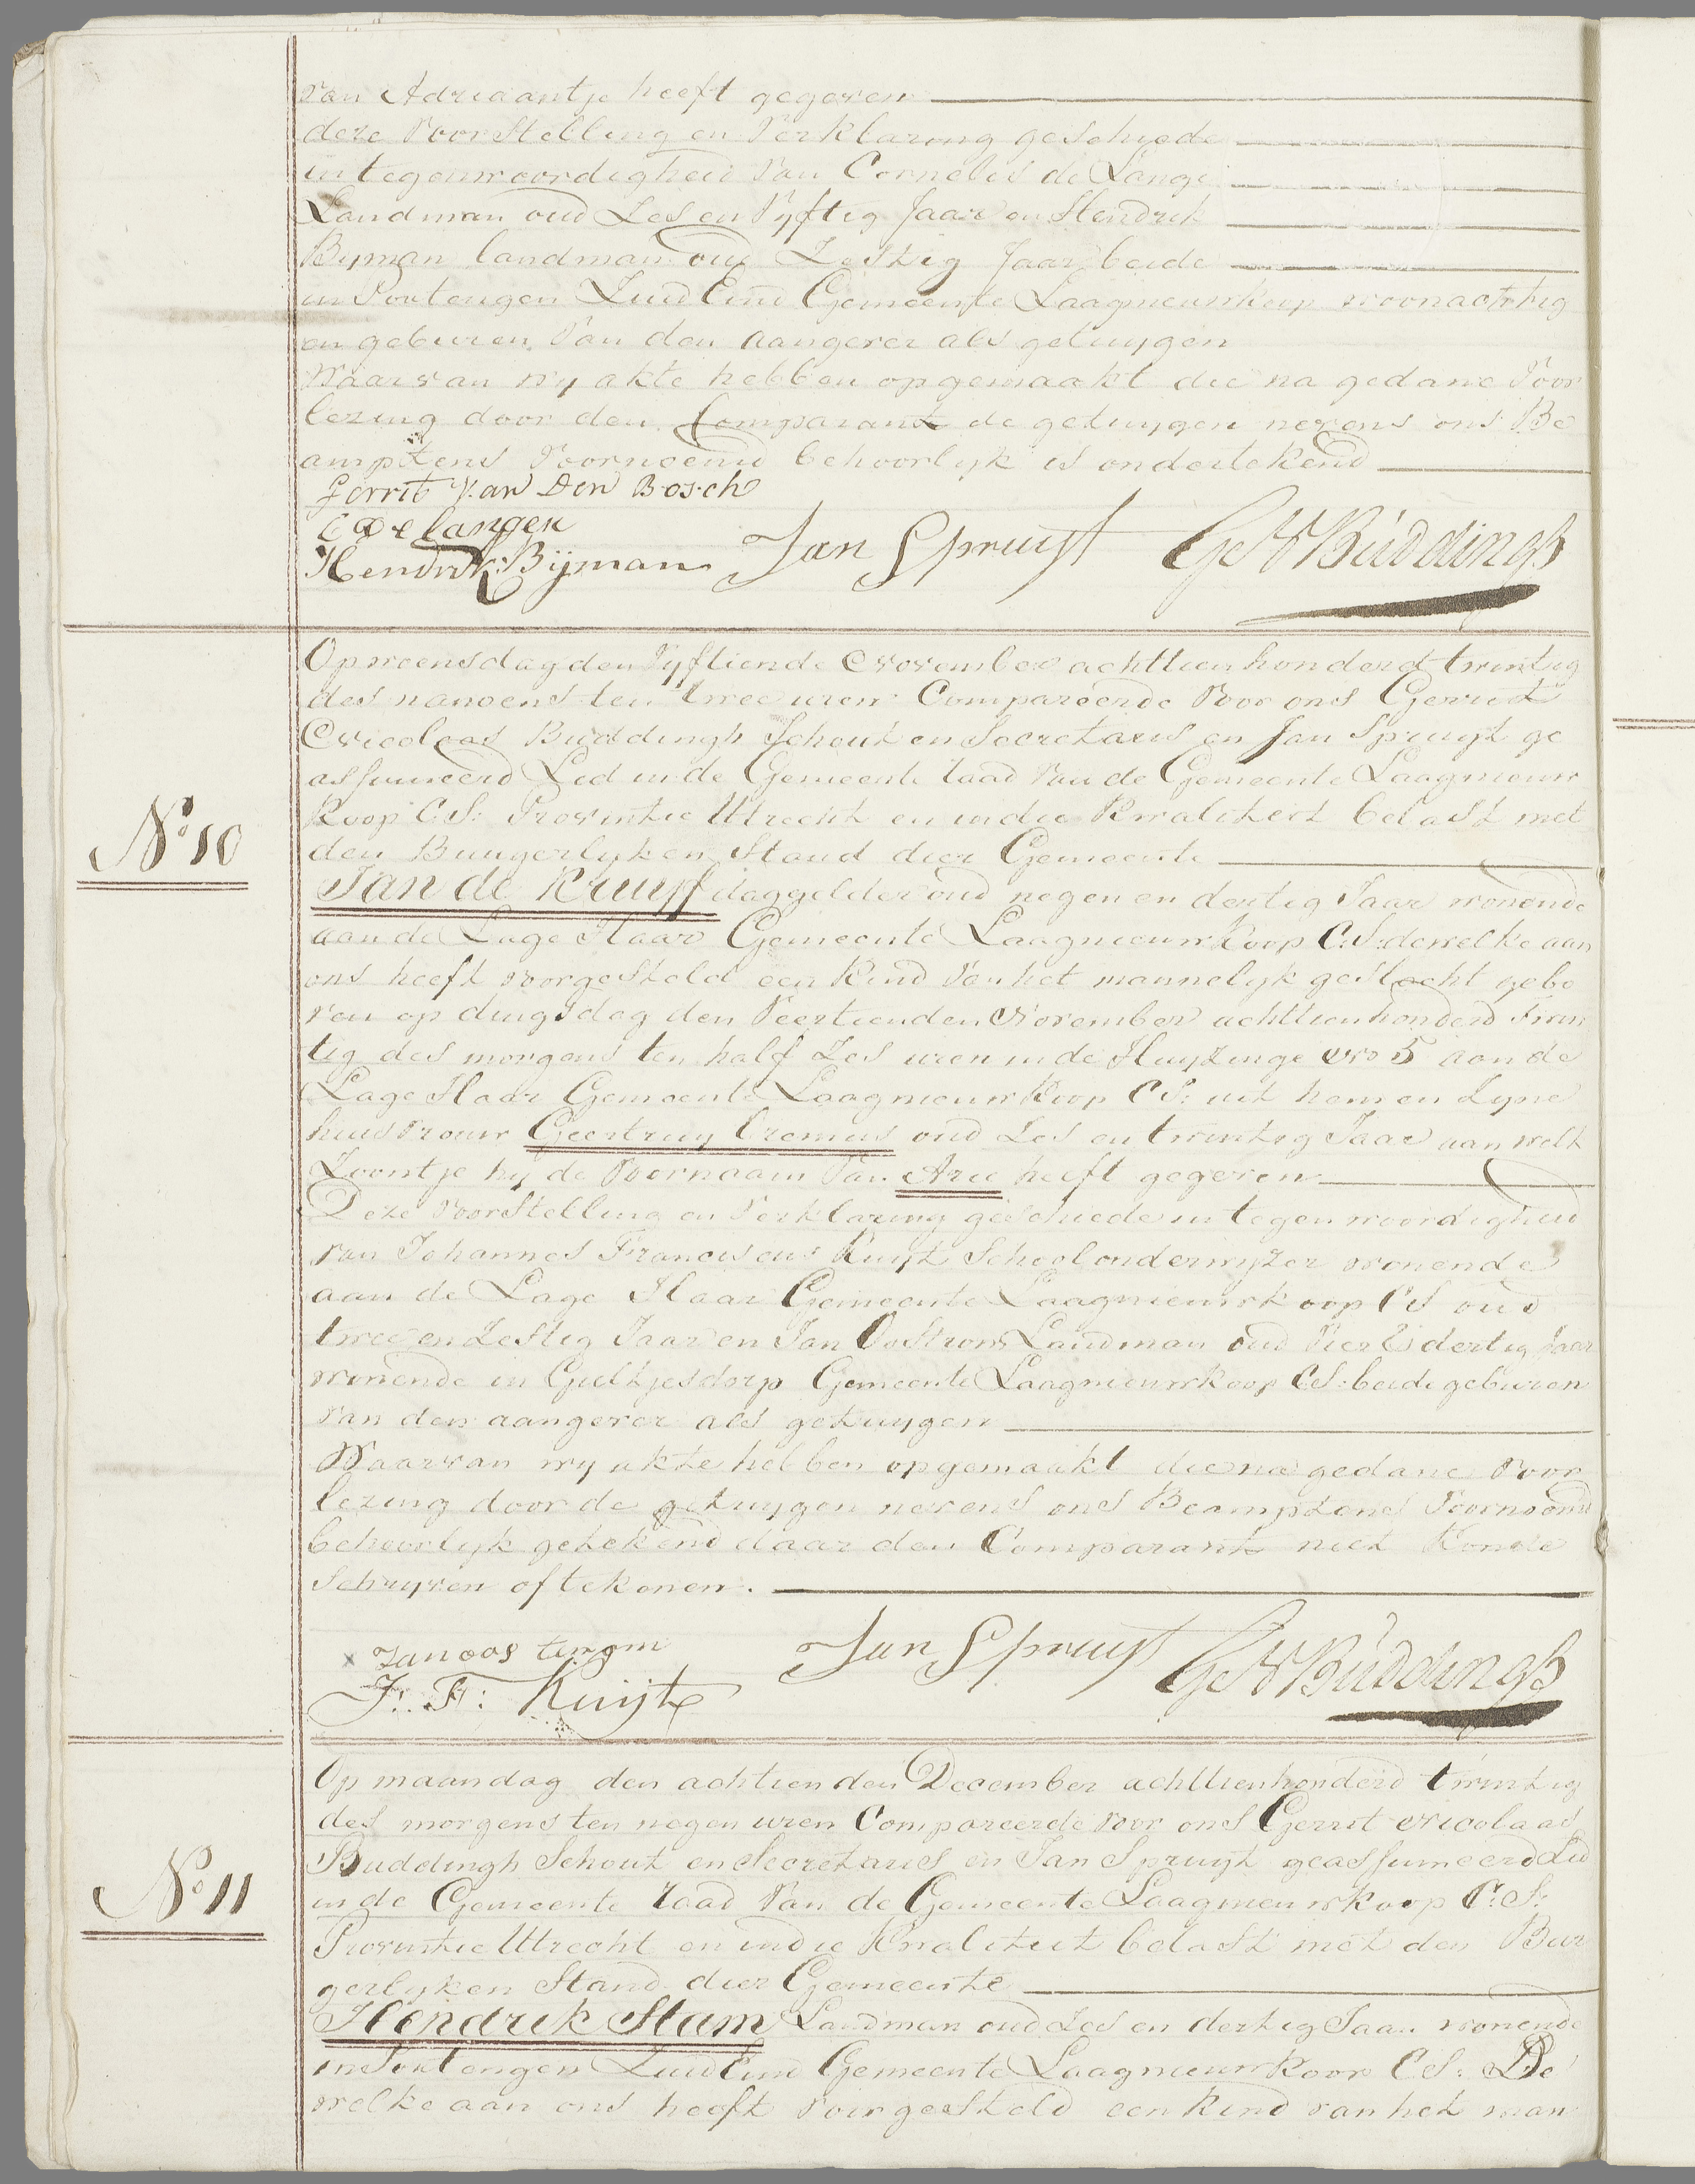 van Adriaantje heeft gegeven
deze voorstelling en verklaring geschiede
in tegenwoordigheid van Cornelis de Lange
Landman oud Zes en vyftig Jaar en Hendrik
Byman landman oud Zestig Jaar beide
in Portengen Zuid Eind Gemeente Laagnieuwkoop woonachtig
en geburen van den aangever als getuygen
Waarvan wy akte hebben opgemaakt die na gedane voor
lezing door den Comparant de getuygen nevens ons Be
amptens voornoemd behoorlyk is ondertekend
Gerrit van Den Bosch
C de langen
Hendrik Bijman Jan Spruijt G: N: Büddingh
Op woensdag den vyftiende November achttien honderd twintig
des namoens ten twee uren Compareerde voor ons Gerrit
Nicolaas Buddingh Schout en Secretaris en Jan Spruyt ge
assumeerd Lid in de Gemeente raad van de Gemeente Laagnieuw
koop C:S: Provintie Utrecht en in die kwaliteit belast met
No 10
den Burgerlyken Stand dier Gemeente
Jan de Kruyff daggelder oud negen en dertig Jaar wonende
aan de Lage Haar Gemeente Laagnieuwkoop C:S: dewelke aan
ons heeft voorgesteld een kind van het mannelyk geslacht gebo
ren op dingsdag den veertienden November achttienhonderd twin
tig des morgens ten half Zes uren in de Huyzinge No 5 aan de
Lage Haar Gemeente Laagnieuwkoop C S: uit hem en Zyne
huisvrouw Geertruy Cremers oud Zes en twintig Jaar aan welk
Zoontje hy de voornaam van Arie heeft gegeven
Deze voorstelling en verklaring geschiede in tegenwoordigheid
van Johannes Franciscus Kuyt Schoolonderwyzer wonende
aan de Lage Haar Gemeente Laagnieuwkoop C S oud
twee en Zestig Jaar en Jan Oostrom Landman oud vier & dertig Jaar
wonende in Gieltjesdorp Gemeente Laagnieuwkoop C S: beide geburen
van den aangever als getuygen
Waarvan wy akte hebben opgemaakt die na gedane voor
lezing door de getuygen nevens ons Beamptens voornoemd
behoorlyk getekend daar den Comparant niet konde
Schryven of tekenen.
x Jan oos terom Jan Spruijt G: N: Büddingh
J: F: Kuijt
Op maandag den achtienden December achttienhonderd twintig
des morgens ten negen uren Compareerde voor ons Gerrit Nicolaas
Buddingh Schout en Secretaris en Jan Spruyt geassumeerd Lid
No 11
in de Gemeente raad van de Gemeente Laagnieuwkoop C: S:
Provintie Utrecht en in die kwaliteit belast met den Bur
gerlyken Stand dier Gemeente
Hendrik Stam Landman oud Zes en dertig Jaar wonende
in Portengen Zuid Eind Gemeente Laagnieuwkoop C S: De
welke aan ons heeft voirgesteld een kind van het man